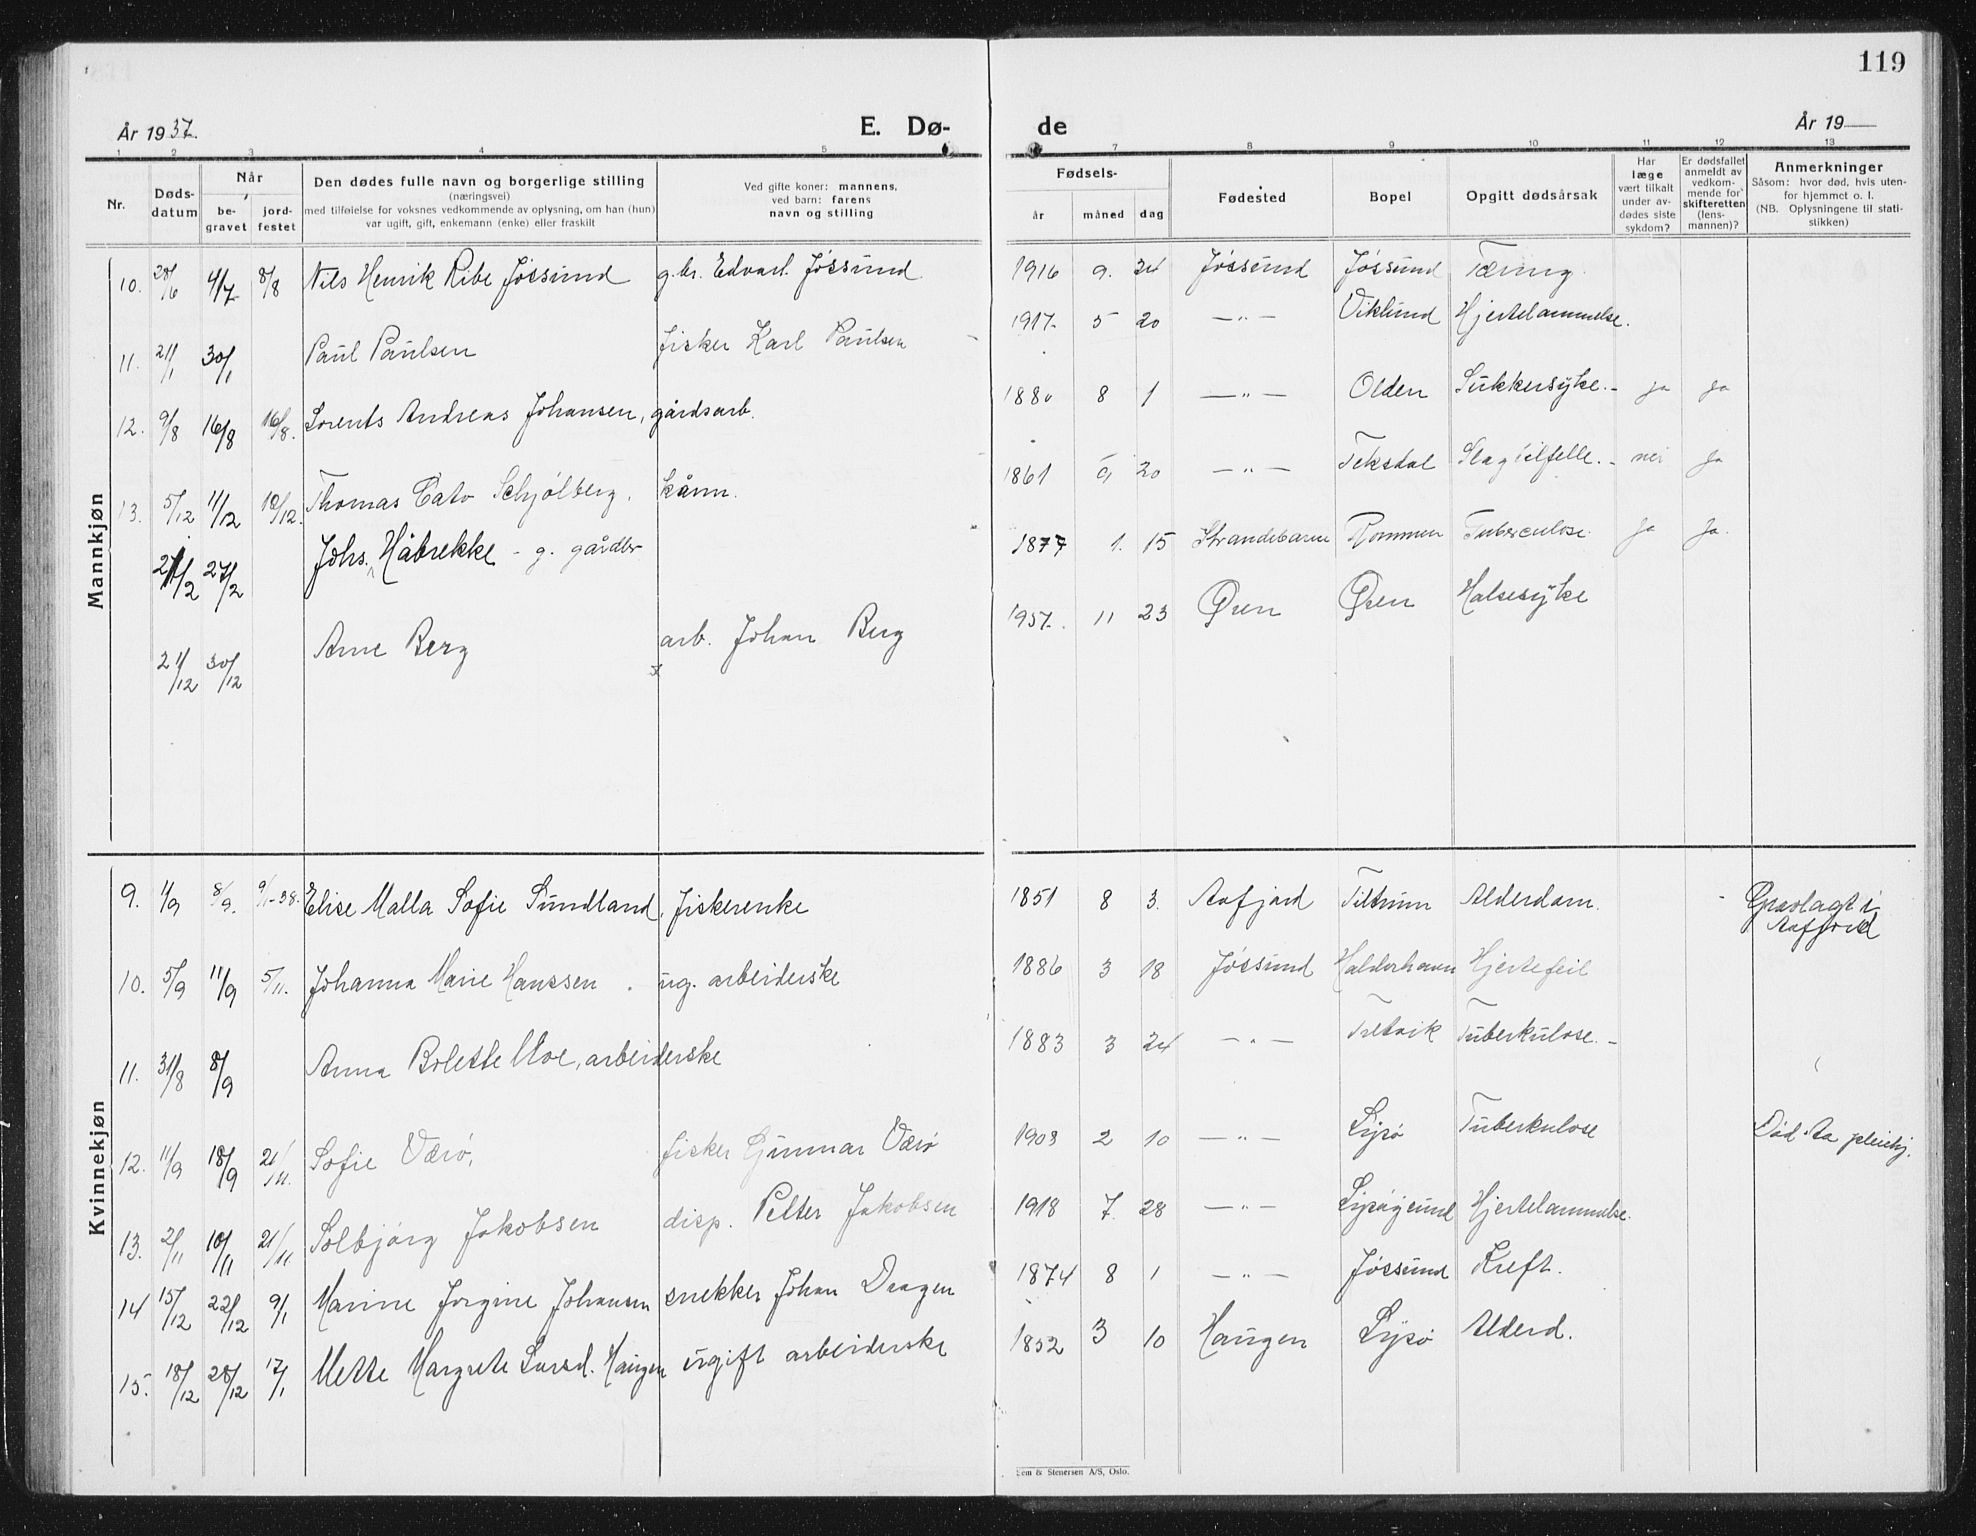 119
År 1937.
E. Dø-
de
År 19
1 2 3 4 5
7 8 9 10 11 12 13
Nr.
Døds-
datum
Når
be-
gravet
jord-
festet
Den dødes fulle navn og borgerlige stilling
(næringsvei)
med tilføielse for voksnes vedkommende av oplysning, om han (hun)
var ugift, gift, enkemann (enke) eller fraskilt
Ved gifte koner: mannens,
ved barn: farens
navn og stilling
Fødsels-
år måned dag
Fødested
Bopel
Opgitt dødsårsak
Har
læge
vært tilkalt
under av-
dødes siste
sykdom?
Er dødsfallet
anmeldt av
vedkom-
mende for
skifteretten
(lens-
mannen)?
Anmerkninger
Såsom: hvor død, hvis uten-
for hjemmet o. l.
(NB. Oplysningene til stati-
stikken)
Mannkjøn
10. 28/6 4/7 8/8 Nils Henrik Ribe Jøssund g.br. Edvart Jøssund 1916 9. 24 Jøssund Jøssund Tæring
11. 21/1 30/1 Paul Paulsen fisker Karl Paulsen 1917 5 20 —"— Viklund Hjertelammelse.
12. 9/8 16/8 16/8. Lorents Andreas Johansen, gårdsarb. 1880 8 1 —"— Olden Sukkersyke. ja ja
13. 5/12 11/12 19/12. Thomas Cato Schjølberg, kårm. 1861 9 20 —"— Teksdal Slagtilfelle. nei ja
27/2 Johs. Håbrekke - g. gårdbr 1877 1. 15 Strandebarm Rømmen Tuberculose. ja ja.
21/12 30/12 Arne Berg arb. Johan Berg 1937. 11 23 Øren Øren Halsesyke
Kvinnekjøn
9. 1/9 8/9. 9/1-38. Elise Malla Sofie Sundland, fiskerenke 1851 8 3. Aafjord Tiltrum Alderdom. Gravlagt i
Aafjord
10. 5/9 11/9 5/11. Johanna Marie Hanssen ug. arbeiderske 1886 3 18 Jøssund Halderhavn Hjertefeil
11. 31/8 8/9 Anna Bolette Moe, arbeiderske 1883 3 24 —"— Tiltvik Tuberkulose.
12. 11/9 18/9 21/11. Sofie Værø, fisker Gunnar Værø 1908 2 10 —"— Lysø Tuberkulose Død Aa pleiehj.
13. 2/11 10/11 21/11. Solbjørg Jakobsen disp. Petter Jakobsen 1918 7. 28 —"— Lysøysund Hjertelammelse.
14 15/12 22/12 9/1 Marine Jorgine Johansen snekker Johan Dragen 1874 8 1 —"— Jøssund Kreft.
15. 18/12 28/12 17/1 Mette Margrete Larsd. Haugen ugift arbeiderske 1852 3 10 Haugen Lysø Alderd.
Sem & Stenersen A/S, Oslo.